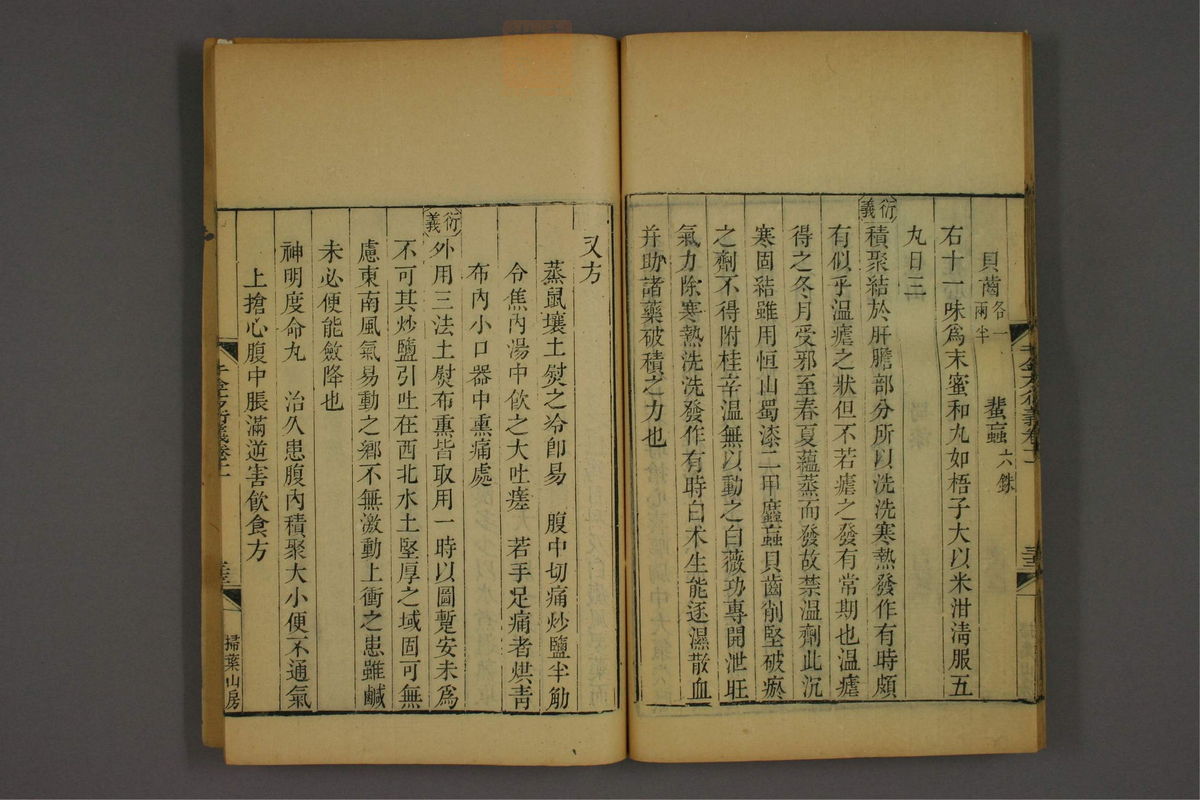 貝齒各一兩半　蜚蝱六銖
右十一味爲末蜜和丸如梧子大以米泔淸服五
丸日三
衍義積聚結於肝膽部分所以洗洗寒熱發作有時頗
有似乎溫瘧之狀但不若瘧之發有常期也溫瘧
得之冬月受邪至春夏蘊蒸而發故禁溫劑此沉
寒固結雖用恒山蜀漆二甲蟅蝱貝齒削堅破瘀
之劑不得附桂辛溫無以動之白薇功專開泄旺
氣力除寒熱洗洗發作有時白术生能逐濕散血
并助諸藥破積之力也
又方
蒸鼠壤土熨之冷卽易　腹中切痛炒鹽半觔
令焦內湯中飲之大吐瘥　若手足痛者烘靑
布內小口器中熏痛處
衍義外用三法土熨布熏皆取用一時以圖蹔安未爲
不可其炒鹽引吐在西北水土堅厚之域固可無
慮東南風氣易動之鄕不無激動上衝之患雖鹹
未必便能斂降也
神明度命丸　治久患腹內積聚大小便不通氣
上搶心腹中脹滿逆害飲食方
千金方衍義卷十一
掃葉山房